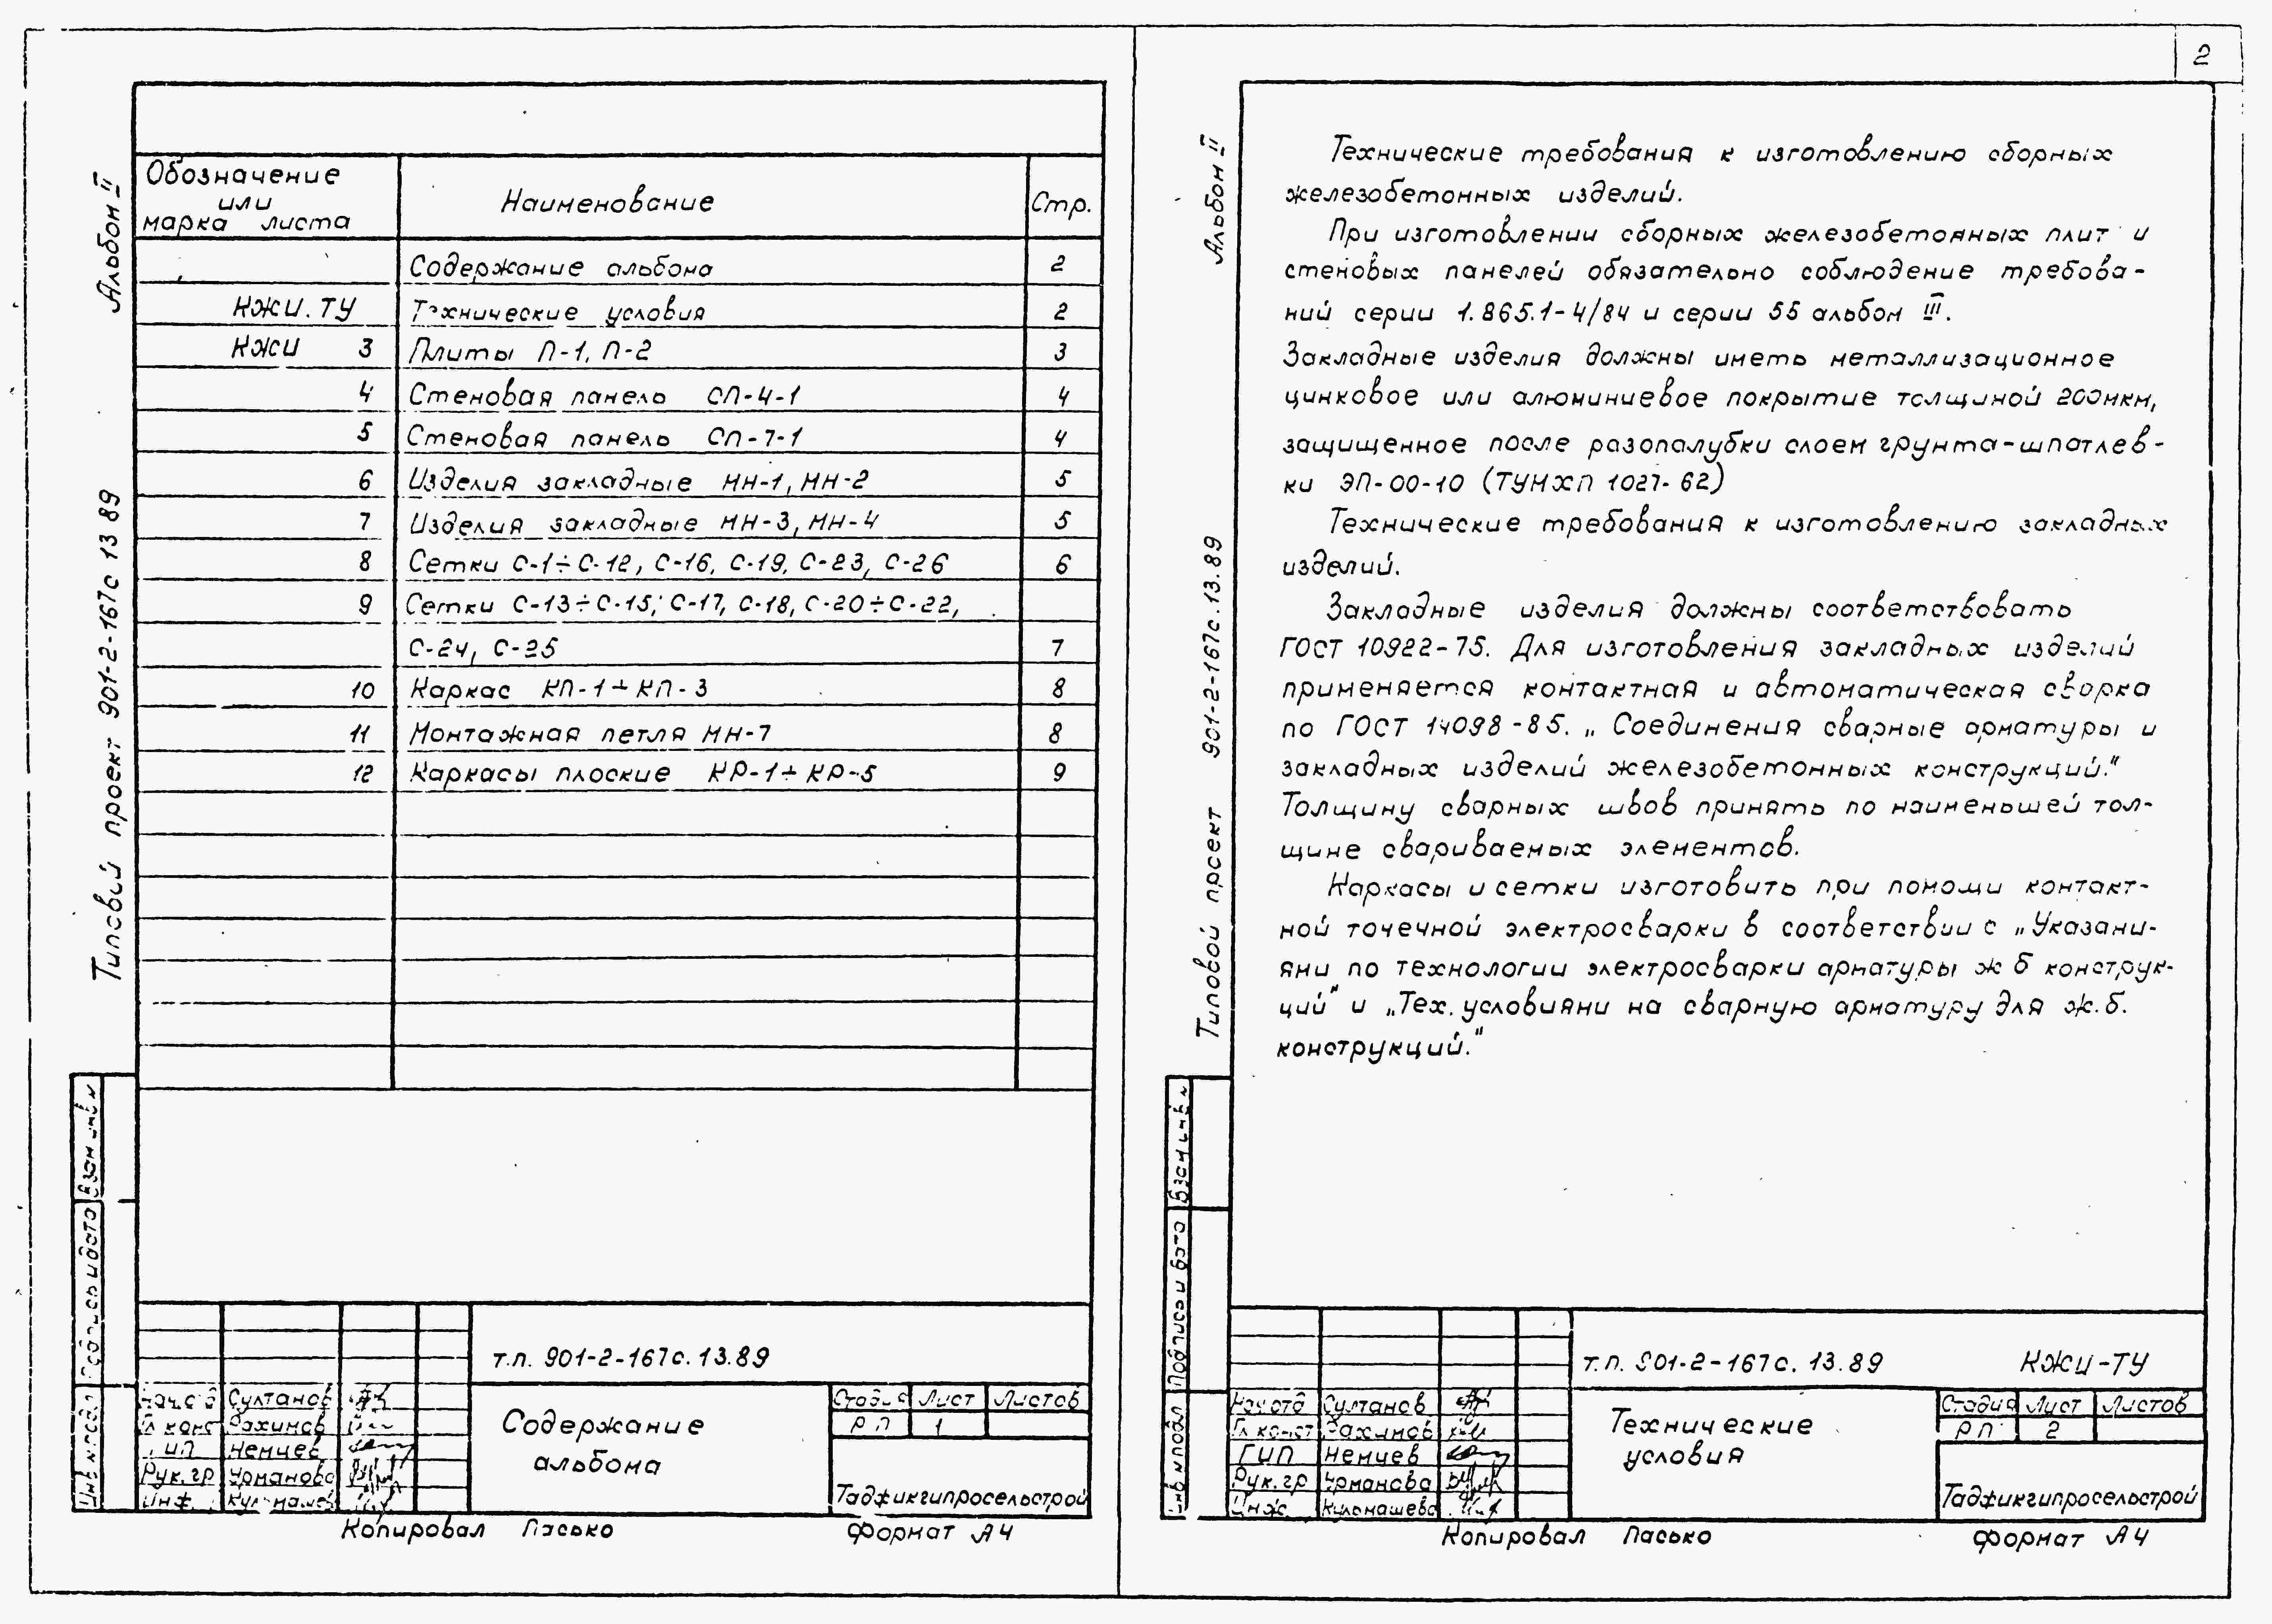 2
Альбом II
Типовой проект 901-2-167с 13 89
Обозначение
или
марка листа
Наименование
Стр.
Содержание альбома 2
КЖИ.ТУ Технические условия 2
КЖИ 3 Плиты П-1, П-2 3
4 Стеновая панель СП-4-1 4
5 Стеновая панель СП-7-1 4
6 Изделия закладные МН-1, МН-2 5
7 Изделия закладные МН-3, МН-4 5
8 Сетки С-1÷С-12, С-16, С-19, С-23, С-26 6
9 Сетки С-13÷С-15, С-17, С-18, С-20÷С-22,
С-24, С-25 7
10 Каркас КП-1÷КП-3 8
11 Монтажная петля МН-7 8
12 Каркасы плоские КР-1÷КР-5 9
Инв № подл Подпись и дата Взам инв №
т.п. 901-2-167с.13.89
Нач. отд Султанов
Гл конс Рахимов
ГИП Немцев
Рук.гр Урманова
Инж.
Содержание
альбома
Стадия Лист Листов
РП 1
Таджикгипросельстрой
Копировал Пасько Формат А4
Альбом II
Типовой проект 901-2-167с.13.89
Технические требования к изготовлению сборных
железобетонных изделий.
При изготовлении сборных железобетонных плит и
стеновых панелей обязательно соблюдение требова-
ний серии 1.865.1-4/84 и серии 55 альбом III.
Закладные изделия должны иметь металлизационное
цинковое или алюминиевое покрытие толщиной 200мкм,
защищенное после разопалубки слоем грунта-шпатлев-
ки ЭП-00-10 (ТУМХП 1027-62)
Технические требования к изготовлению закладных
изделий.
Закладные изделия должны соответствовать
ГОСТ 10922-75. Для изготовления закладных изделий
применяется контактная и автоматическая сварка
по ГОСТ 14098-85. „Соединения сварные арматуры и
закладных изделий железобетонных конструкций."
Толщину сварных швов принять по наименьшей тол-
щине свариваемых элементов.
Каркасы и сетки изготовить при помощи контакт-
ной точечной электросварки в соответствии с „Указани-
ями по технологии электросварки арматуры ж б конструк-
ций" и „Тех. условиями на сварную арматуру для ж.б.
конструкций."
Инв № подл Подпись и дата Взам инв №
т.п. 901-2-167с.13.89 КЖИ-ТУ
Нач отд Султанов
Гл конст Рахимов
ГИП Немцев
Рук.гр Урманова
Инж. Кулонашева
Технические
условия
Стадия Лист Листов
РП 2
Таджикгипросельстрой
Копировал Пасько Формат А4